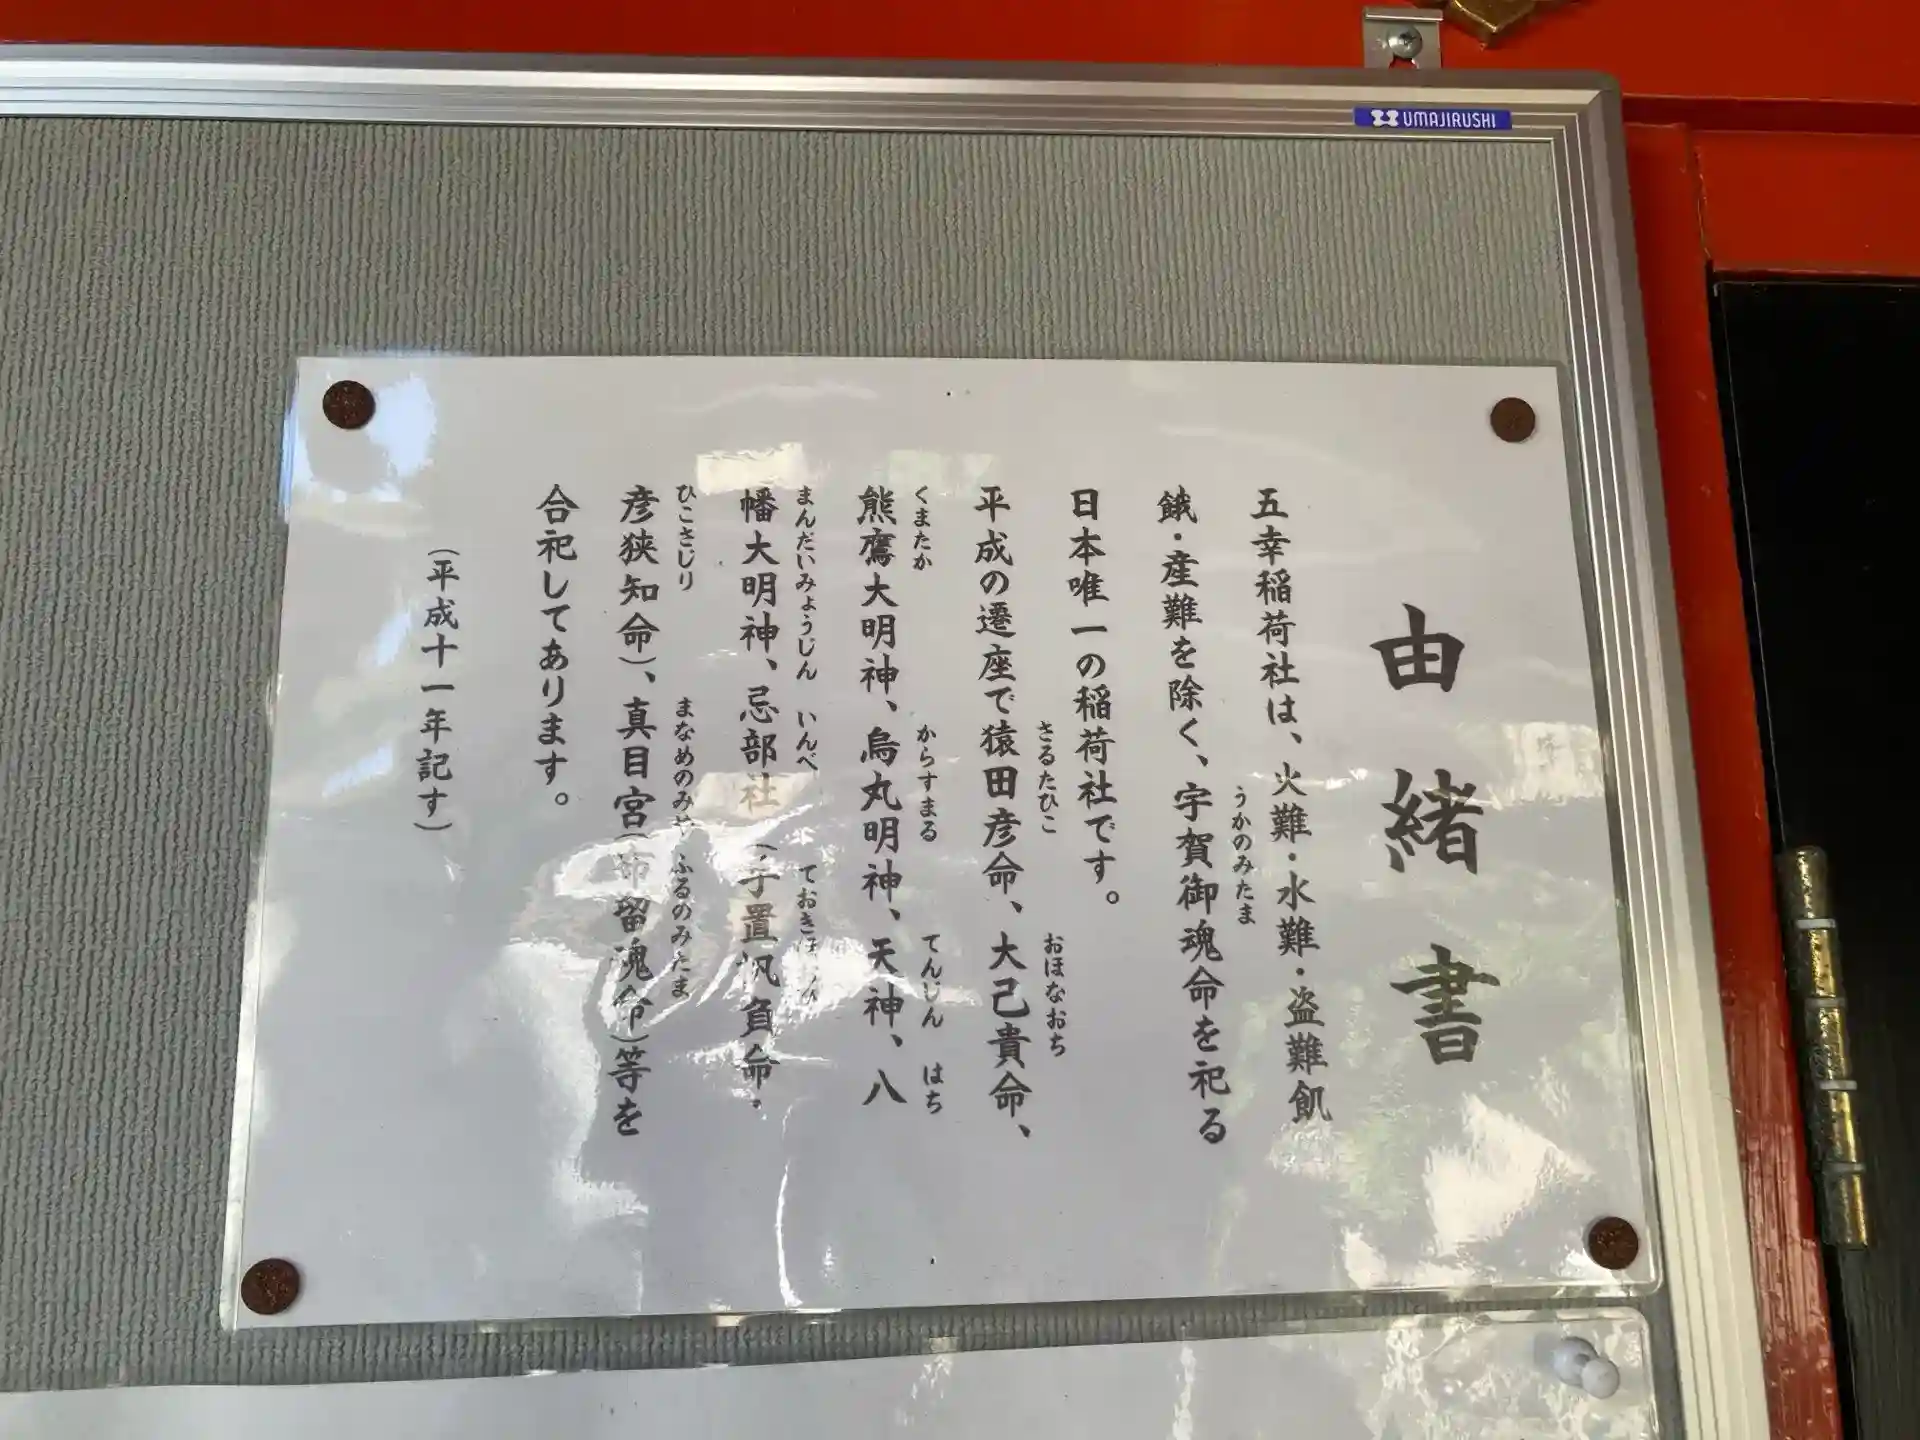 UMAJIRUSHI
由緒書
五幸稲荷社は、火難・水難・盗難飢
うかのみたま
餓・産難を除く、宇賀御魂命を祀る
日本唯一の稲荷社です。
さるたひこ おほなおち
平成の遷座で猿田彦命、大己貴命、
くまたか からすまる てんじん はち
熊鷹大明神、烏丸明神、天神、八
まんだいみょうじん いんべ
幡大明神、忌部社(手置帆負命・
ひこさじり まなめのみや ふるのみたま
彦狭知命)、真目宮(布留魂命)等を
合祀してあります。
(平成十一年記す)